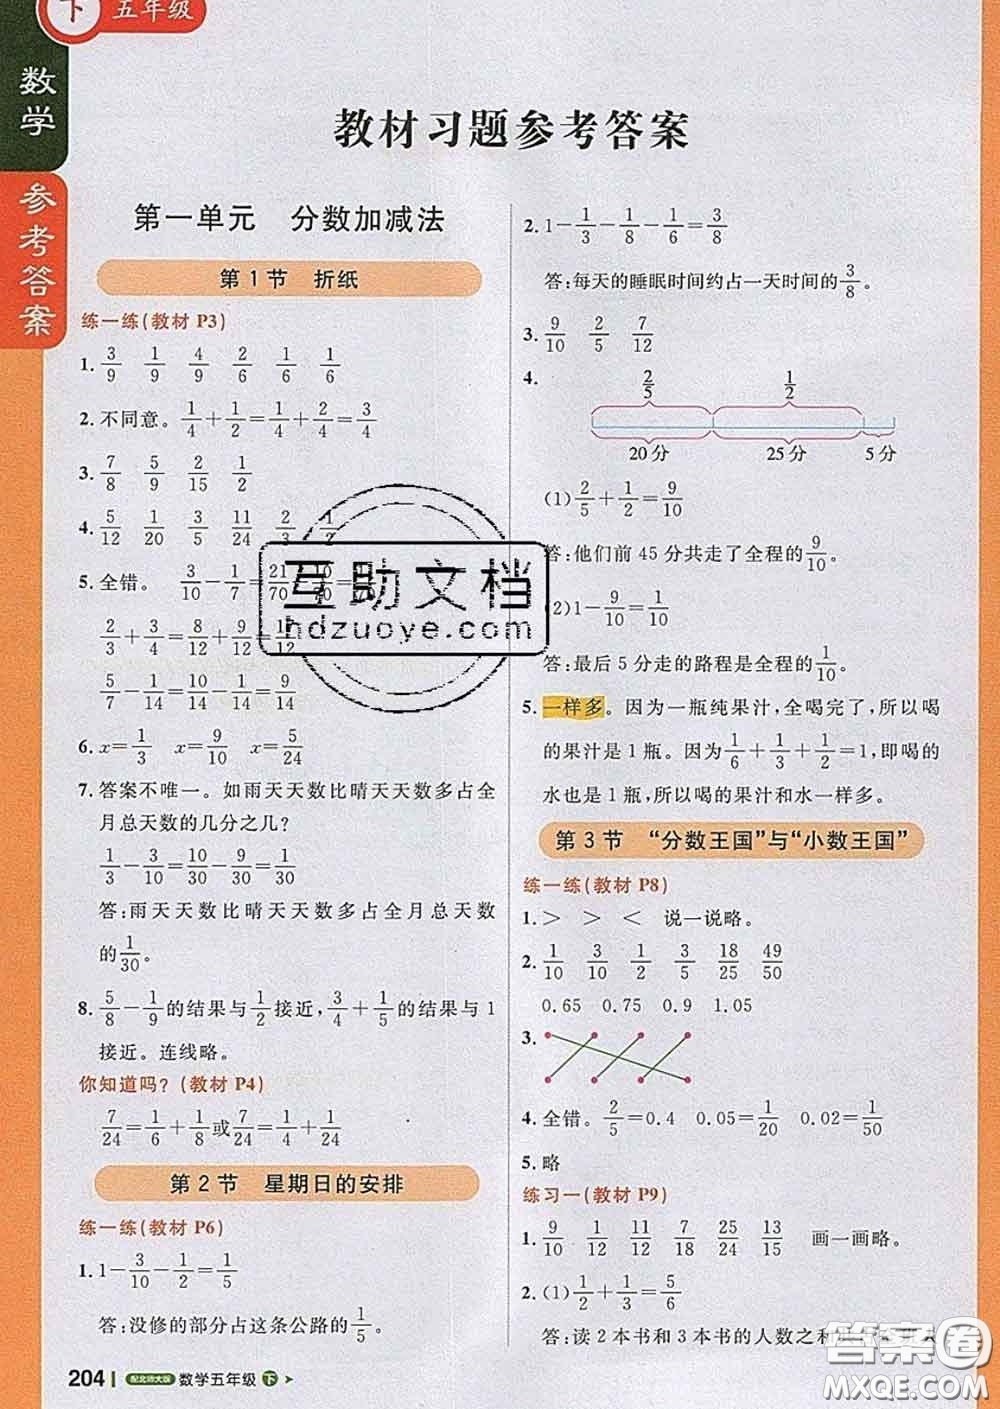 下 五年级
数学
参考答案
教材习题参考答案
第一单元 分数加减法
第1节 折纸
练一练(教材 P3)
1. 3/9 1/9 4/9 2/6 1/6 1/6
2. 不同意。1/4+1/2=1/4+2/4=3/4
3. 7/8 5/9 2/15 1/2
4. 5/12 1/20 3/5 11/24 2/3 1/2
5. 全错。 3/10-1/7=21/70-10/70=
2/3+3/4=8/12+9/12=
5/7-1/14=10/14-1/14=9/14
6. x=1/3 x=9/10 x=5/24
7. 答案不唯一。如雨天天数比晴天天数多占全
月总天数的几分之几?
1/3-3/10=10/30-9/30=1/30
答:雨天天数比晴天天数多占全月总天数
的1/30。
8. 5/8-1/9的结果与1/2接近,3/4+1/5的结果与1
接近。连线略。
你知道吗?(教材 P4)
7/24=1/6+1/8或7/24=1/4+1/24
第2节 星期日的安排
练一练(教材 P6)
1. 1-3/10-1/2=1/5
答:没修的部分占这条公路的1/5。
2. 1-1/3-1/8-1/6=3/8
答:每天的睡眠时间约占一天时间的3/8。
3. 9/10 2/5 7/12
4. 2/5 1/2
20分 25分 5分
(1)2/5+1/2=9/10
答:他们前45分共走了全程的9/10。
(2)1-9/10=1/10
答:最后5分走的路程是全程的1/10。
5. 一样多。因为一瓶纯果汁,全喝完了,所以喝
的果汁是1瓶。因为1/6+1/3+1/2=1,即喝的
水也是1瓶,所以喝的果汁和水一样多。
第3节 “分数王国”与“小数王国”
练一练(教材 P8)
1. > > < 说一说略。
2. 1/10 3/10 1/2 3/5 18/25 49/50
0.65 0.75 0.9 1.05
3.
4. 全错。2/5=0.4 0.05=1/20 0.02=1/50
5. 略
练习一(教材 P9)
1. 9/10 1/12 11/12 7/18 25/24 13/15 画一画略。
2. (1)1/2+1/3=5/6
答:读2本书和3本书的人数之和
204 配北师大版 数学五年级 下
互助文档
hdzuoye.com
答案圈
MXQE.COM